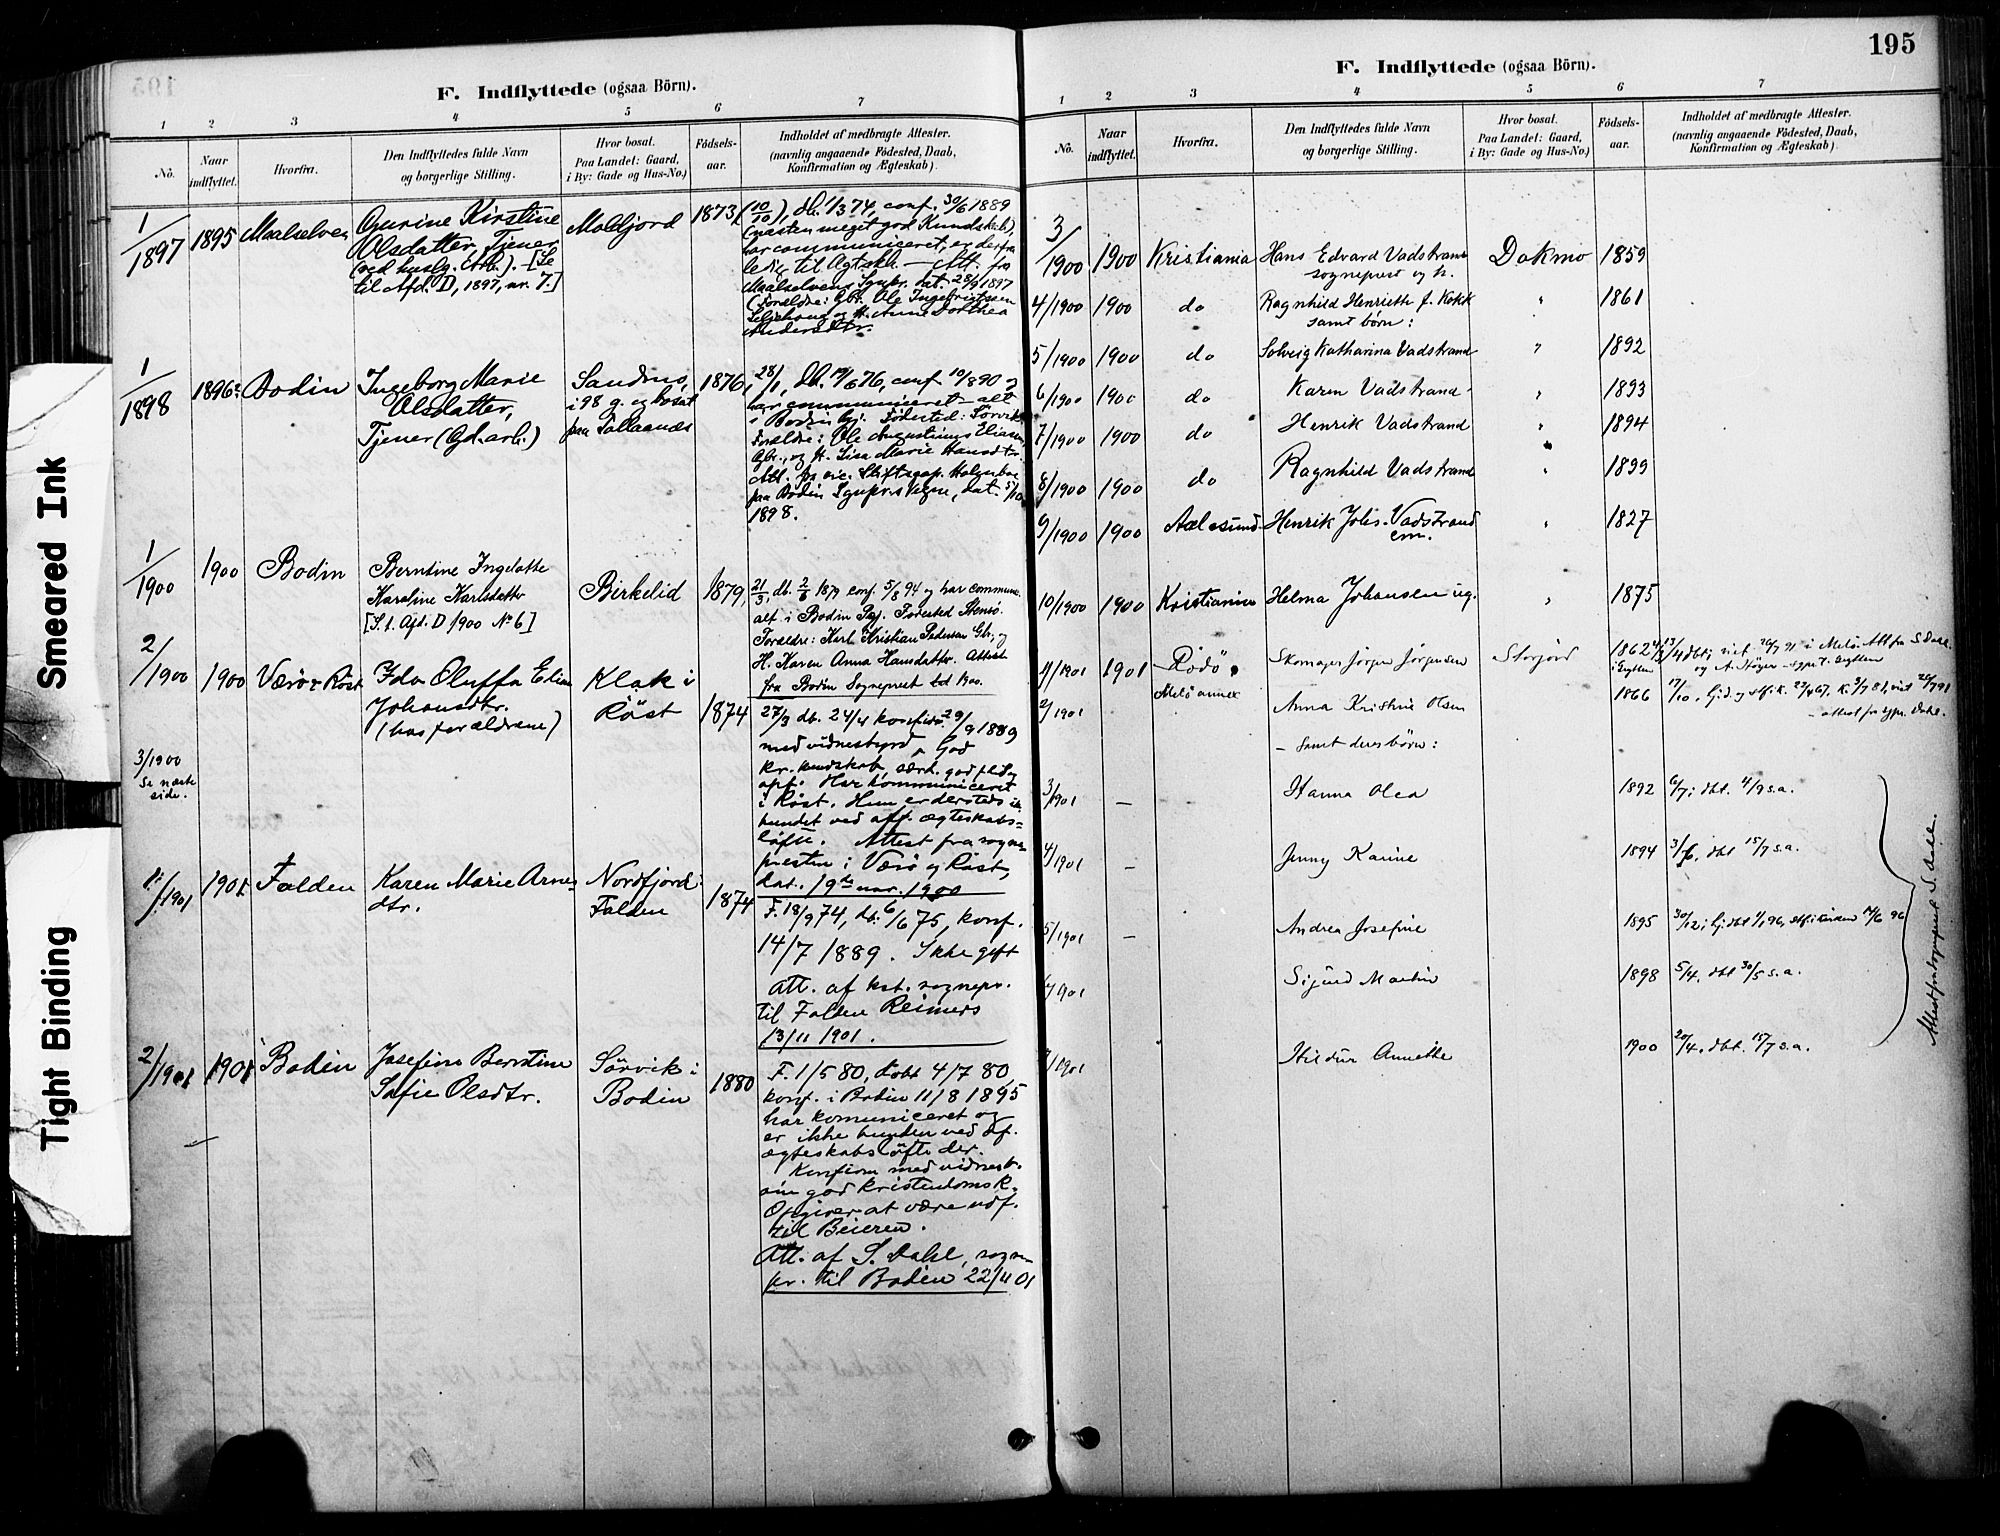 Smeared Ink
Tight Binding
F. Indflyttede (ogsaa Börn).
1 2 3 4 5 6 7
No.
Naar indflyttet.
Hvorfra.
Den Indflyttedes fulde Navn
og borgerlige Stilling.
Hvor bosat.
Paa Landet: Gaard,
i By: Gade og Hus-No.)
Födsels-
aar.
Indholdet af medbragte Attester.
(navnlig angaaende Födested, Daab,
Konfirmation og Ægteskab).
1/1897 1895 Maalselven
Olsdatter, Tjener
til Afd. D, 1897, nr. 7.]
Moldjord 1873
(10/10), db. 1/3 74, conf. 30/6 1889
(næsten meget god Kundskab),
har communiceret, er derfra
ledig til Ægtsk. — Att. fra
Maalselvens Sgnpr. dat. 28/9 1897
1/1898 1896 Bodin
Ingeborg Marie
Olsdatter,
Tjener (Gd. arb.)
i 98 g. og bosat
paa
1876
har communiceret – alt
i Bodin
Forældre: Ole Augustinus Eliasen,
Gbr., og H. Lisa Marie Hansdtr.
paa Bodin Sgnpr.s Vegne, dat. 5/10
1898.
1/1900 1900 Bodin
Berntine
Karoline Karlsdatter
[S. t. Afd. D 1900 No 6]
Birkelid 1879,
21/3, db. 2/6 1879 conf. 5/8 94 og har commun.
alt i Bodin Pgj. Fødested
Forældre: Karl Kristian Pedersen Gbr. og
H. Karen Anna Hansdatter. Attest
fra Bodin Sognepræst
2/1900 1900 Værö & Röst
Ida Oluffa
Johansdtr.
(hos forældrene)
Klak i
Röst 1874
27/3 db. 24/4 konfirm. 29/9 1889
med vidnesbyrd, God
kr. kundskab, særd. god flid og
opf. Har kommuniceret
i Röst. Hun er dersteds ik.
bundet ved aff. ægteskabs-
löfte. Attest fra sogne-
presten i Værö og Röst,
dat. 19de 1900
3/1900
Se næste
side.
1/1901 1901 Folden
Karen Marie Arnes
dtr.
Nordfjord
Folden 1874
F. 18/9 74, db. 6/6 75, konf.
14/7 1889. Ikke gift
Att. af kst. sognepr.
til Folden Reimers
13/11 1901.
2/1901 1901 Bodin
Josefine Berntine
Sofie Olsdtr.
Sörvik i
Bodin 1880
F. 1/5 80, döbt 4/7 80,
konf. i Bodin 11/8 1895
har komuniceret og
er ikke bunden ved aff.
ægteskabslöfte der.
Konfirm med vidnesb.
om god kristendomsk.
Opgiver at være udf.
til Beieren.
Att. af S. Dahl, sogne-
pr. til Bodin 22/4 01
195
F. Indflyttede (ogsaa Börn).
1 2 3 4 5 6 7
No.
Naar indflyttet.
Hvorfra.
Den Indflyttedes fulde Navn
og borgerlige Stilling.
Hvor bosat.
Paa Landet: Gaard,
i By: Gade og Hus-No.)
Födsels-
aar.
Indholdet af medbragte Attester.
(navnlig angaaende Födested, Daab,
Konfirmation og Ægteskab).
3/1900 1900 Kristiania Hans Edvard Vadstrand Dokmo 1859
sogneprest og h.
4/1900 1900 do Ragnhild Henriette f. Kokk " 1861
samt börn:
5/1900 1900 do Solveig Katharina Vadstrand " 1892
6/1900 1900 do Karen Vadstrand " 1893
7/1900 1900 do Henrik Vadstrand " 1894
8/1900 1900 do Ragnhild Vadstrand " 1899
9/1900 1900 Aalesund Henrik Johs. Vadstrand " 1827
em.
10/1900 1900 Kristiania Helma Johansen ug. " 1875
1/1901 1901 Rödö Skomager Jörgen Jörgensen Storjord 1862
Melö annex
2/1901 Anna Kristine Olsen 1866
– attest fra sgpr. Dahl.
– Samt deres börn:
3/1901 — Hanna Olea 1892 6/7; dbt. 4/9 s.a.
4/1901 — Jenny Karine 1894 3/6, dbt 15/7 s.a.
5/1901 — Andrea Josefine 1895
6/1901 Sigurd Martin 1898 5/4. dbt 30/5 s.a.
7/1901 Hildur Annette 1900 20/4. dbt. 15/7 s.a.
Attest fra sogneprest S. Dahl.